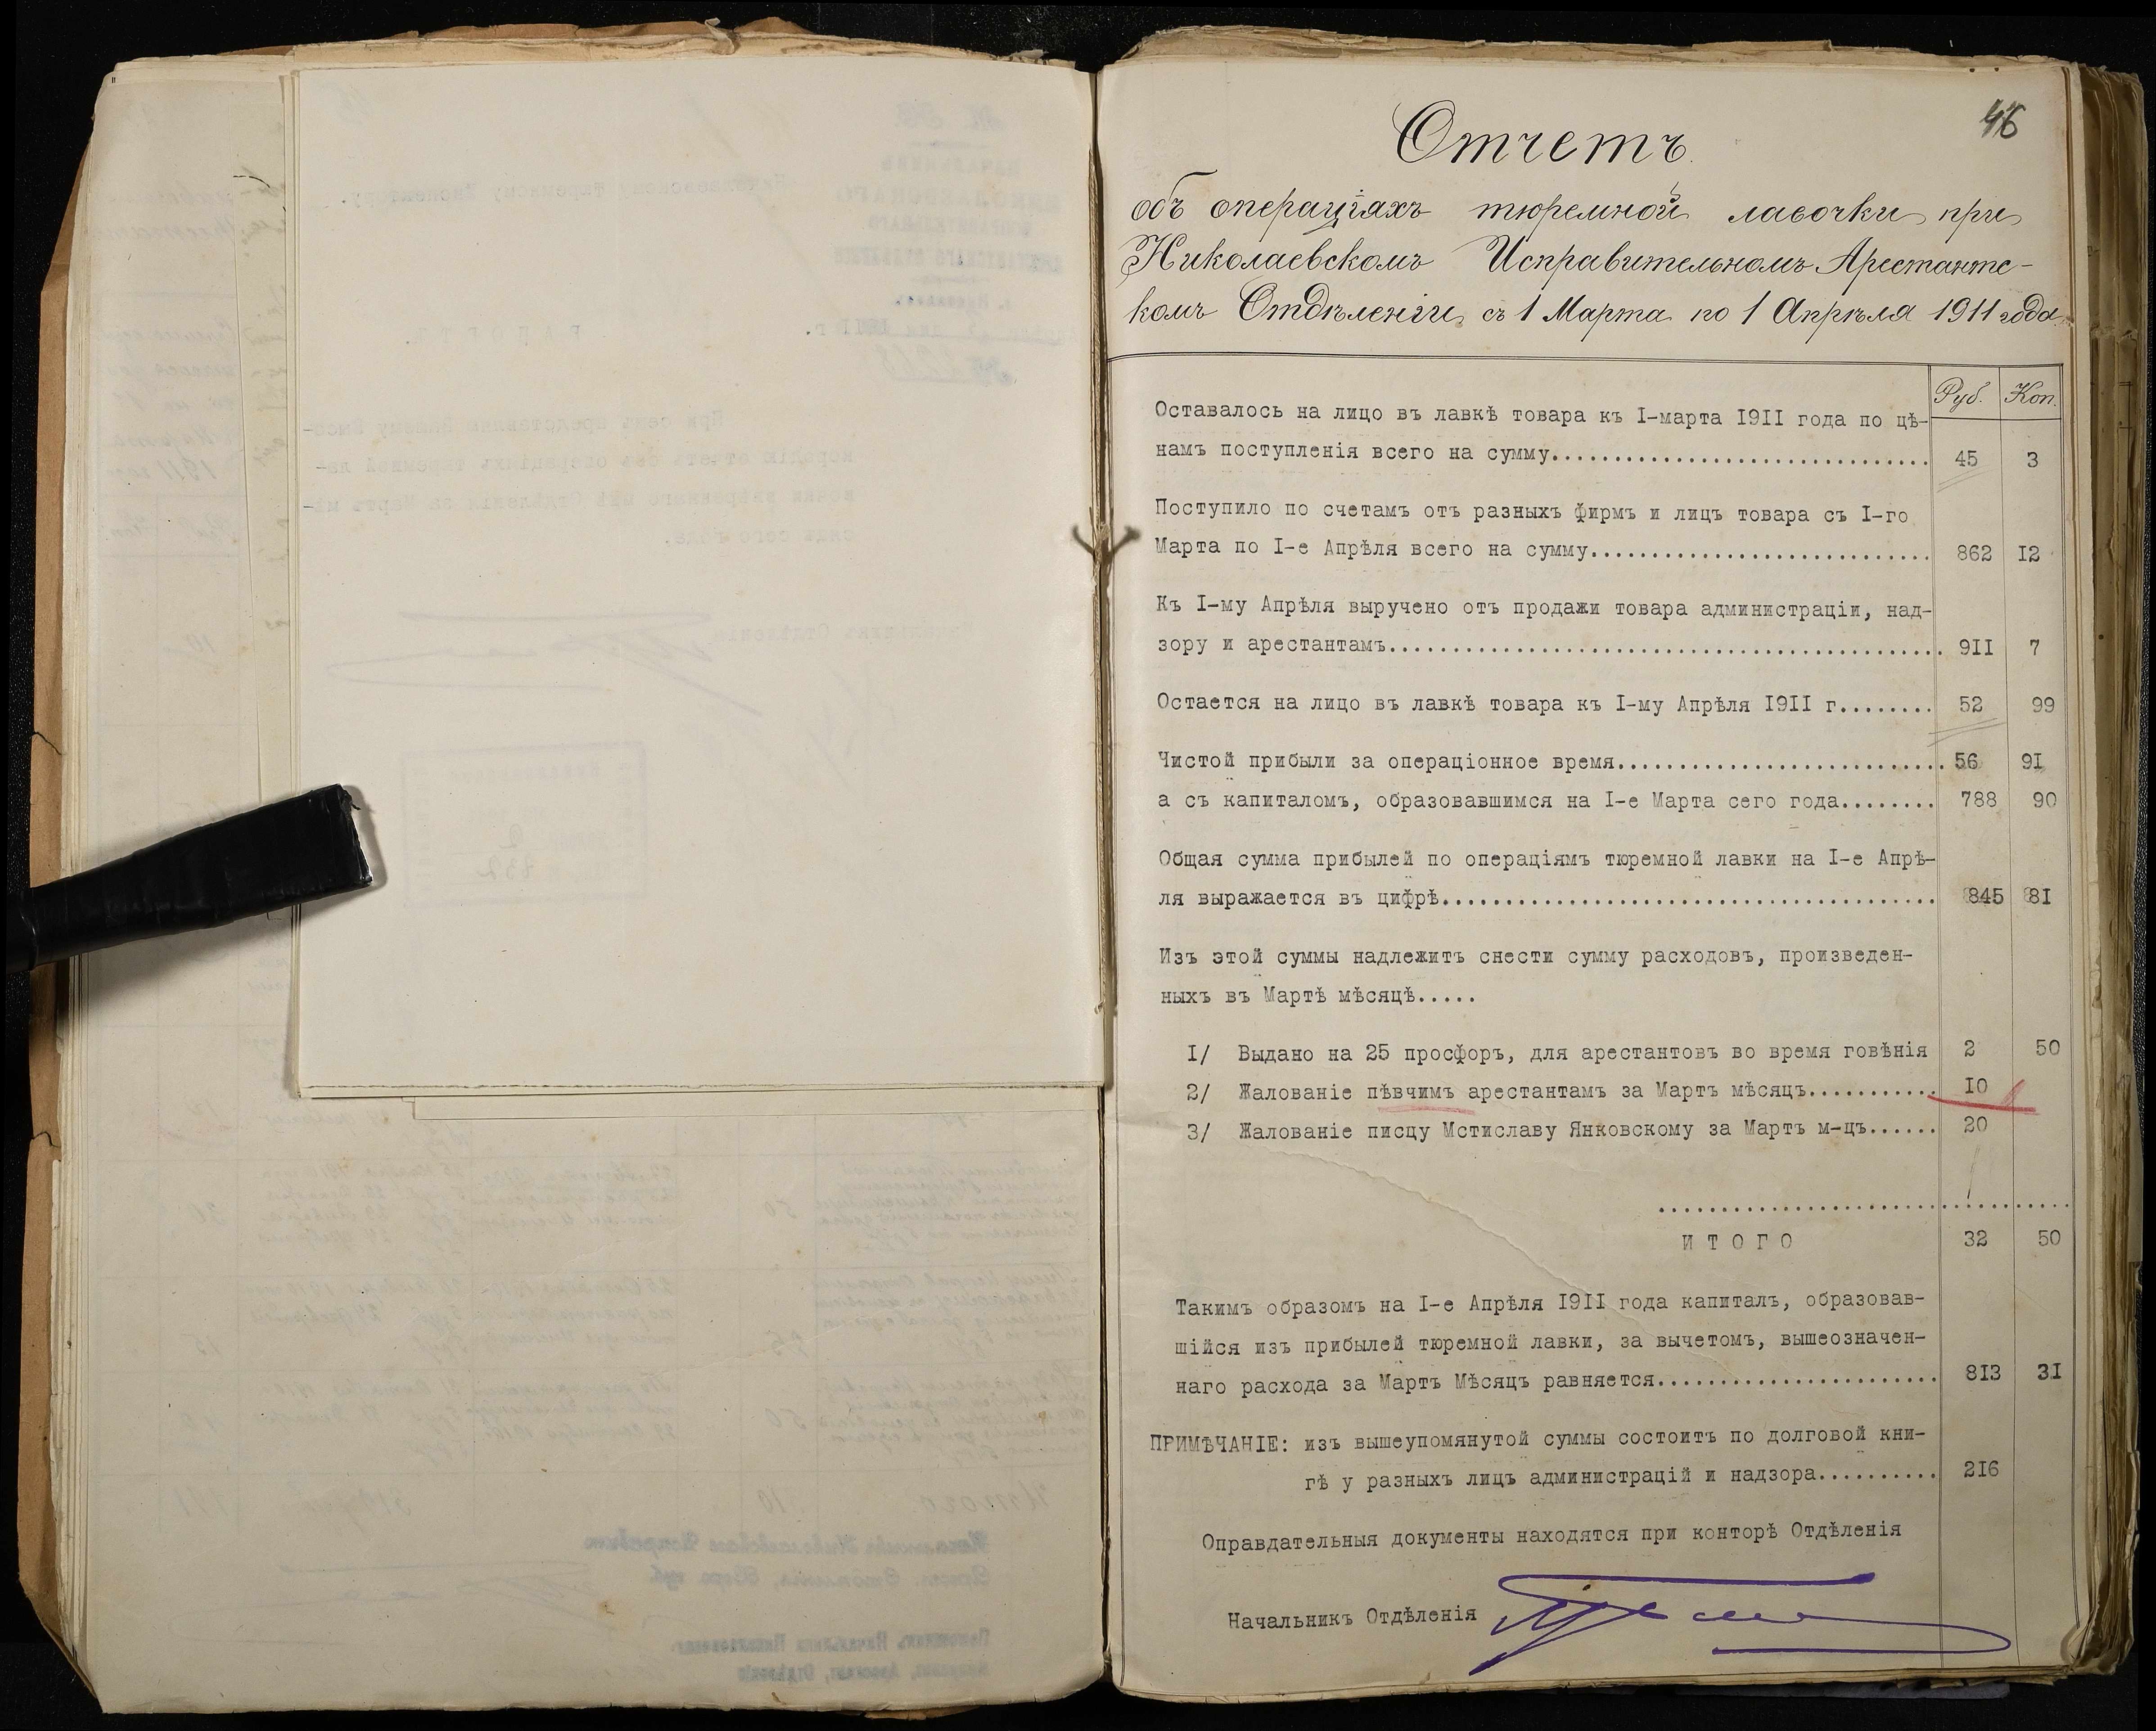 46
Отчетъ
объ операціяхъ тюремной лавочки при
Николаевскомъ Исправительномъ Арестантс-
комъ Отдѣленіи съ 1 Марта по 1 Апрѣля 1911 года.
Руб. Коп.
Оставалось на лицо въ лавкѣ товара къ I-марта I9II года по цѣ-
намъ поступленія всего на сумму.............................. 45 3
Поступило по счетамъ отъ разныхъ фирмъ и лицъ товара съ I-го
Марта по I-е Апрѣля всего на сумму........................... 862 I2
Къ I-му Апрѣля выручено отъ продажи товара администраціи, над-
зору и арестантамъ............................................ 9II 7
Остается на лицо въ лавкѣ товара къ I-му Апрѣля I9II г........ 52 99
Чистой прибыли за операціонное время.......................... 56 9I
а съ капиталомъ, образовавшимся на I-е Марта сего года........ 788 90
Общая сумма прибылей по операціямъ тюремной лавки на I-е Апрѣ-
ля выражается въ цифрѣ....................................... 845 8I
Изъ этой суммы надлежитъ снести сумму расходовъ, произведен-
ныхъ въ Мартѣ мѣсяцѣ.....
I/ Выдано на 25 просфоръ, для арестантовъ во время говѣнія 2 50
2/ Жалованіе пѣвчимъ арестантамъ за Мартъ мѣсяцъ.......... I0
3/ Жалованіе писцу Мстиславу Янковскому за Мартъ м-цъ...... 20
.................................
И Т О Г О 32 50
Такимъ образомъ на I-е Апрѣля I9II года капиталъ, образовав-
шійся изъ прибылей тюремной лавки, за вычетомъ, вышеозначен-
наго расхода за Мартъ Мѣсяцъ равняется...................... 8I3 3I
ПРИМѢЧАНІЕ: изъ вышеупомянутой суммы состоитъ по долговой кни-
гѣ у разныхъ лицъ администрацій и надзора.......... 2I6
Оправдательныя документы находятся при конторѣ Отдѣленія
Начальникъ Отдѣленія